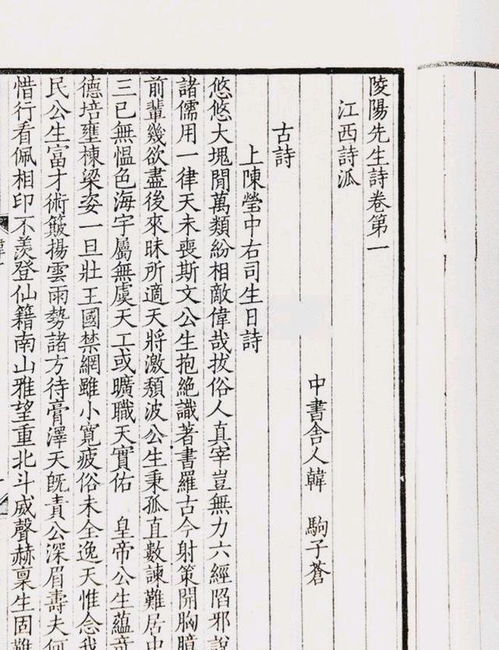 陵陽先生詩卷第一
江西詩派
中書舍人韓 駒子蒼
古詩
上陳瑩中右司生日詩
悠悠大塊閒萬類紛相敵偉哉拔俗人真宰豈無力六經陷邪說
諸儒用一律天未喪斯文公生抱絕識著書羅古今射策開胸臆
前輩幾欲盡後來昧所適天將激頹波公生秉孤直數諫難居中
三已無慍色海宇屬無虞天工或曠職天實佑 皇帝公生蘊奇
德培壅棟梁姿一旦壯王國禁網雖小寬疲俗未全逸天惟念我
民公生富才術簸揚雲雨勢諸方待膏澤天既責公深眉壽夫何
惜行看佩相印不羨登仙籍南山雅望重北斗威聲赫稟生固難